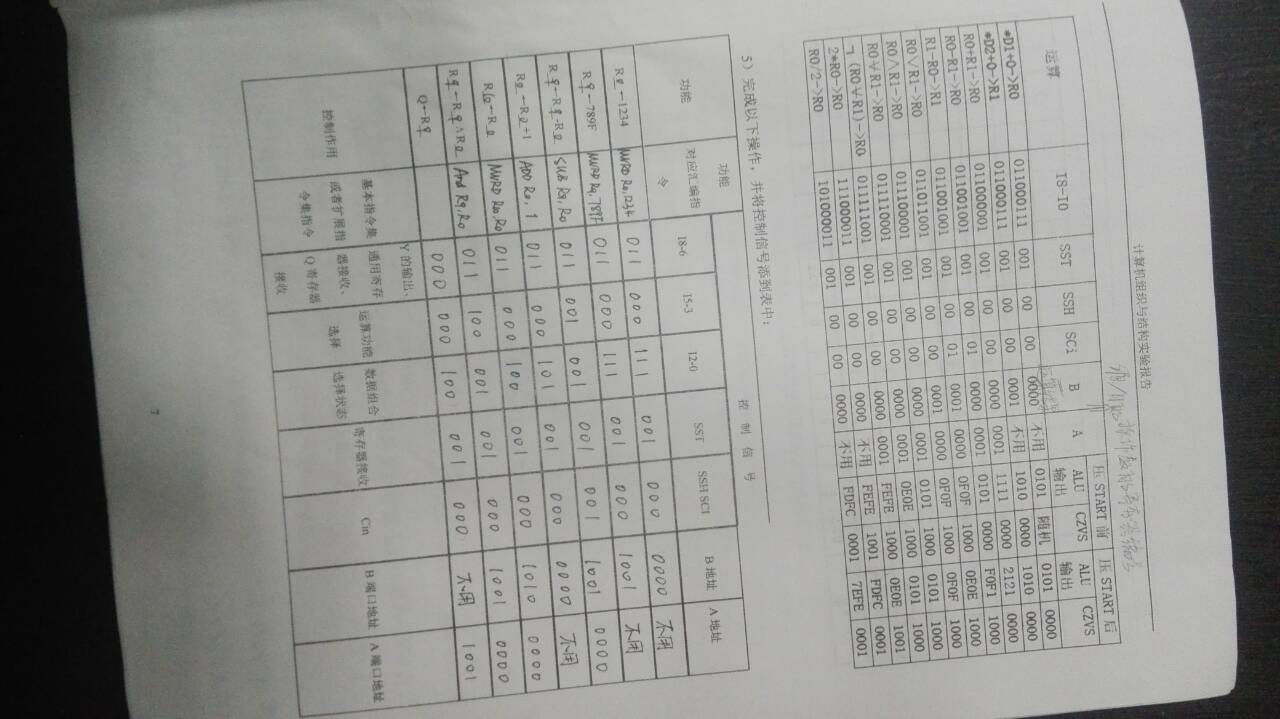 计算机组织与结构实验报告
运算 I8-I0 SST SSH SCi B A 压 START 前 压 START 后
ALU 输出 CZVS ALU 输出 CZVS
*D1+0->R0 011000111 001 00 00 0000 不用 0101 随机 0101 0000
*D2+0->R1 011000111 001 00 00 0001 不用 1010 0000 1010 0000
R0+R1->R0 011000001 001 00 00 0000 0001 1111 0000 2121 0000
R0-R1->R0 011001001 001 00 01 0000 0001 0101 0000 F0F1 1000
R1-R0->R1 011001001 001 00 01 0001 0000 0F0F 1000 0E0E 1000
R0∨R1->R0 011011001 001 00 00 0000 0001 0F0F 1000 0F0F 1000
R0∧R1->R0 011100001 001 00 00 0000 0001 0101 1000 0101 1000
R0∀R1->R0 011110001 001 00 00 0000 0001 0E0E 1000 0E0E 1001
¬(R0∀R1)->R0 011111001 001 00 00 0000 0001 FEFE 1001 FDFC 0001
2*R0->R0 111000011 001 00 00 0000 不用 FEFE 1001 FDFC 0001
R0/2->R0 101000011 001 00 00 0000 不用 FDFC 0001 7EFE 0001
5）完成以下操作，并将控制信号添到表中：
功能 控制信号
功能 对应汇编指令 I8-6 I5-3 I2-0 SST SSH SCI B地址 A地址
R0←1234 MVRD R0,1234 011 000 111 001 000 0000 不用
R9←789F MVRD R9,789F 011 000 111 001 000 1001 不用
R9←R9-R0 SUB R9,R0 011 001 001 001 001 1001 0000
R0←R0+1 ADD R0,1 011 000 101 001 000 0000 不用
R10←R0 MVRD R10,R0 011 000 100 001 000 1010 0000
R9←R9∧R0 And R9,R0 011 100 001 001 000 1001 0000
Q←R9 000 000 100 001 000 不用 1001
控制作用 基本指令集或者扩展指令集指令 Y的输出、通用寄存器接收、Q寄存器接收 运算功能选择 数据组合选择状态 寄存器接收 Cin B端口地址 A端口地址
7